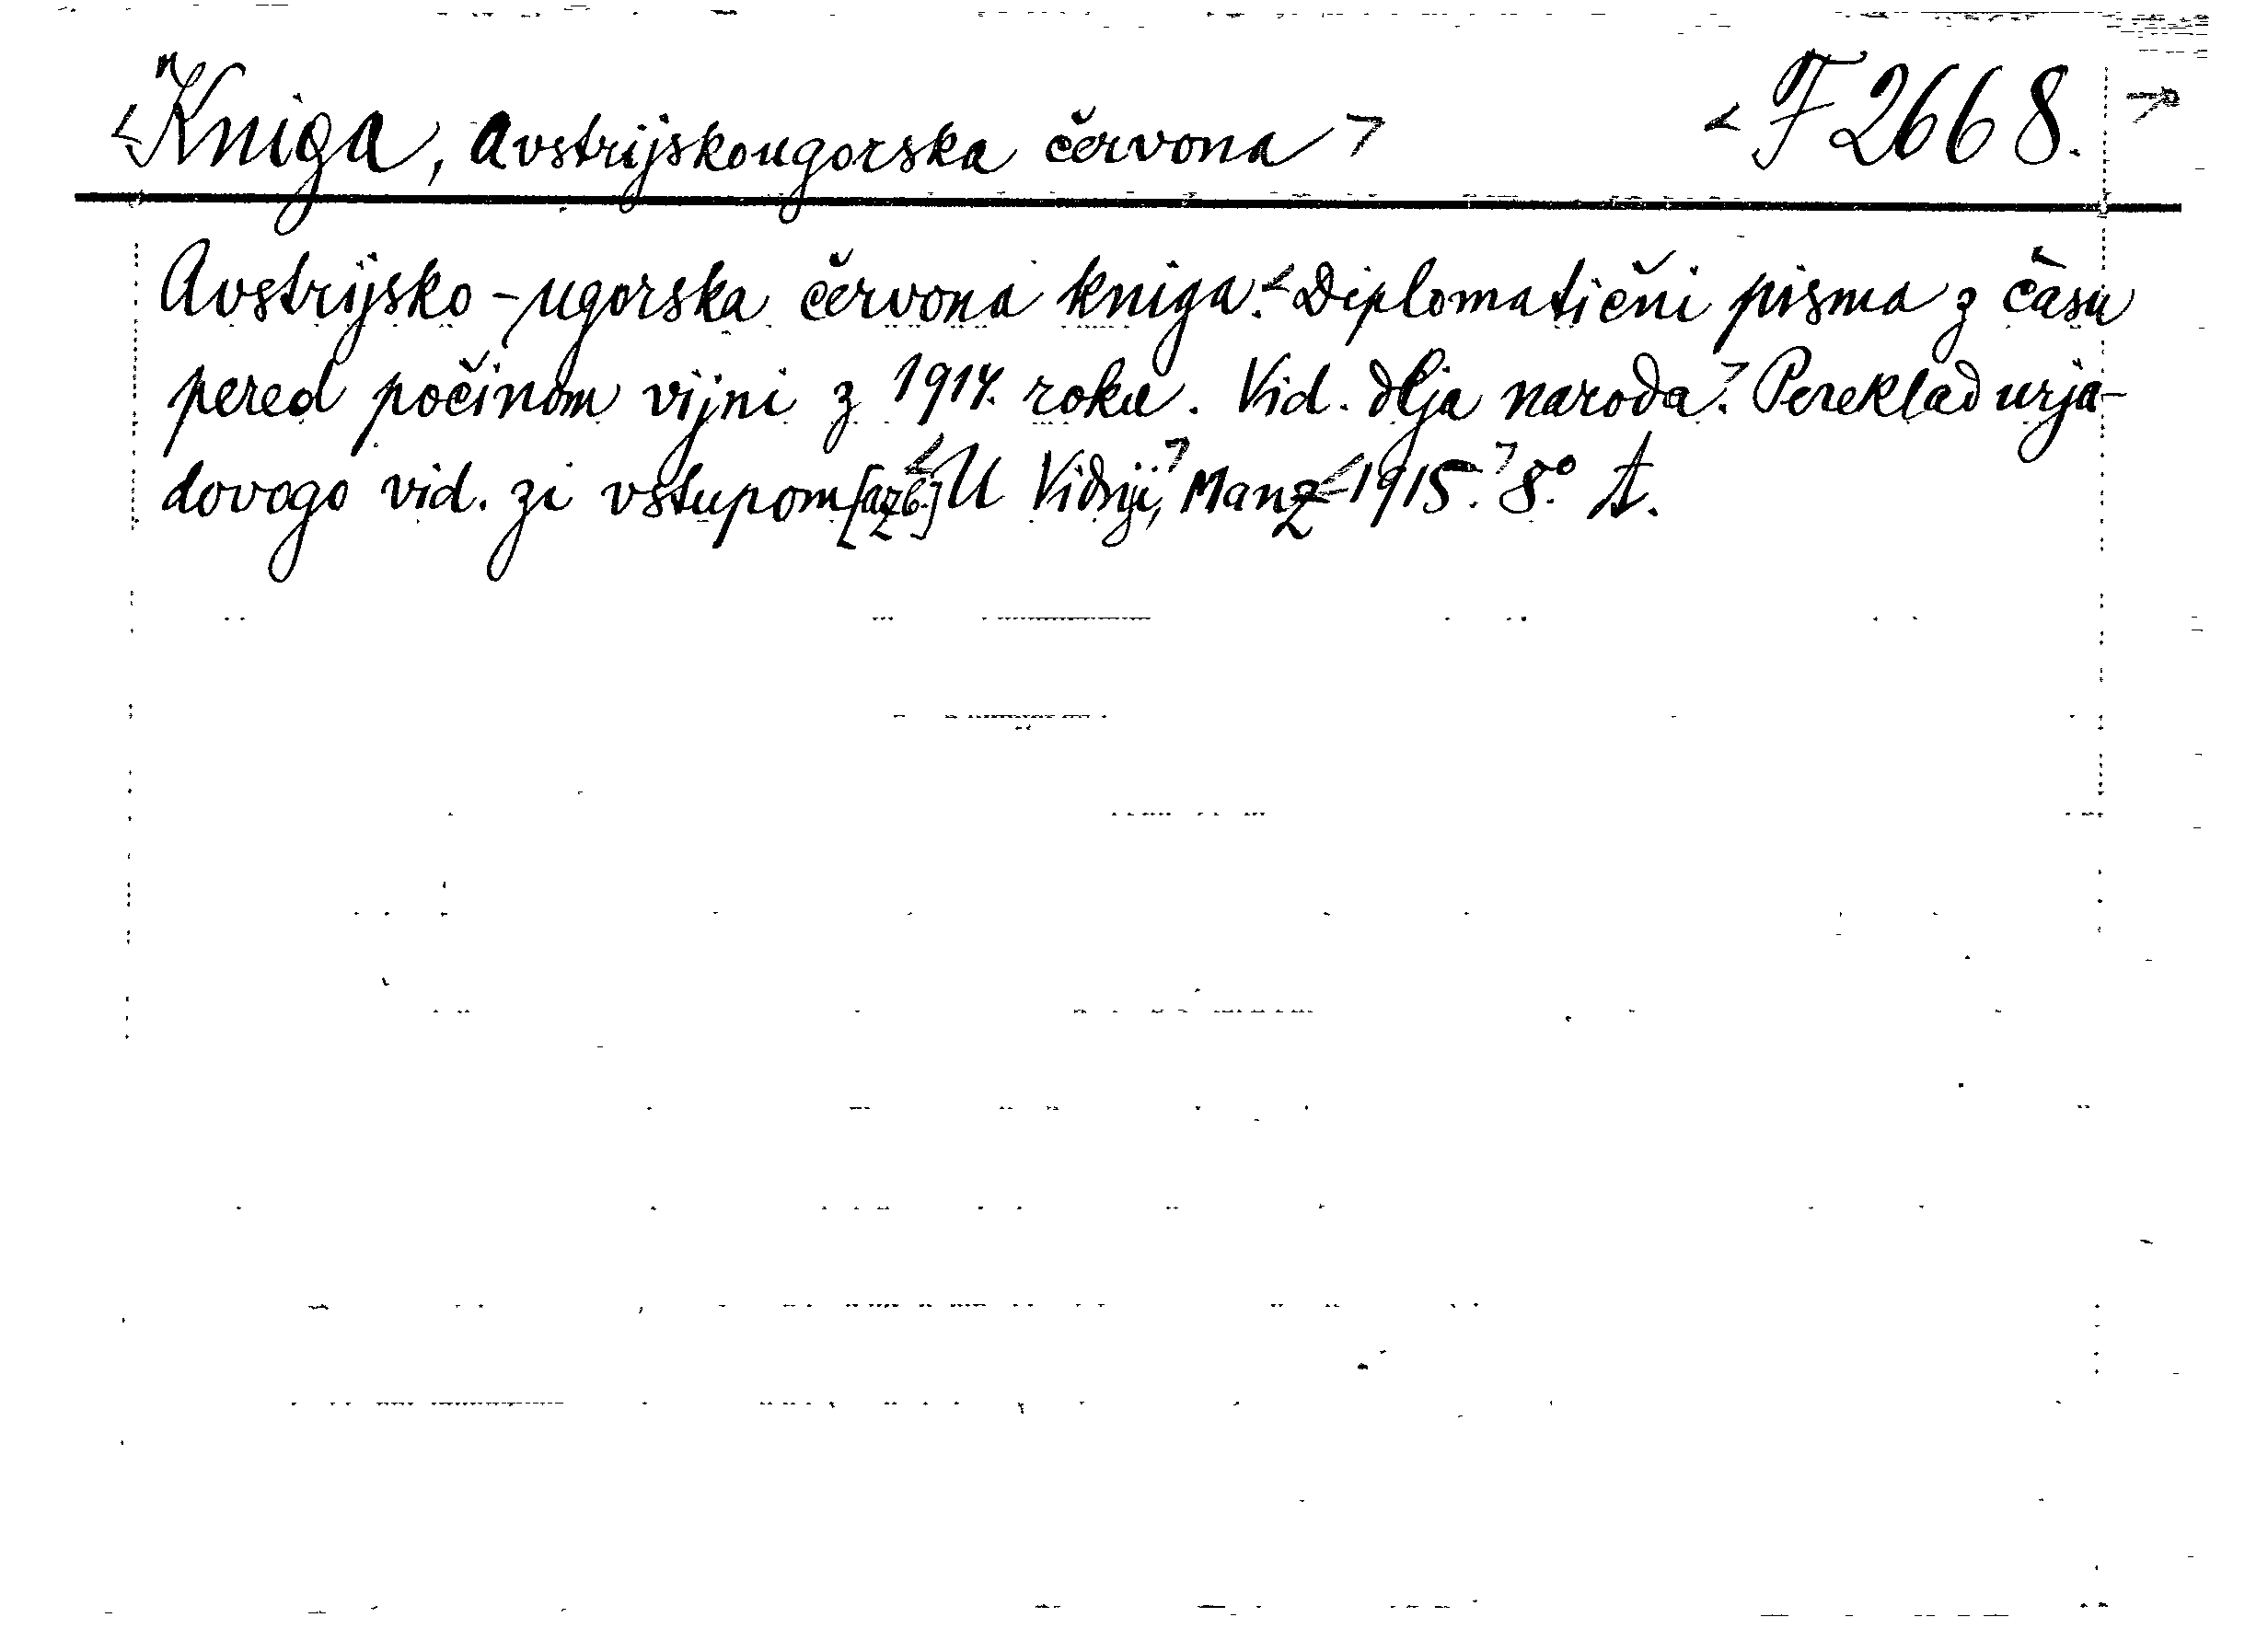 <"Kniga, avstrijskougorska červona> <F 2668.>
Avstrijsko-ugorska červona kniga.<Diplomatični pisma z času
pered počinom vijni z 1914. roku. Vid. dlja naroda.> Pereklad urja-
dovogo vid. zi vstupom [azb.] <U Vidnji,> Manz <1915.> 8.° A.